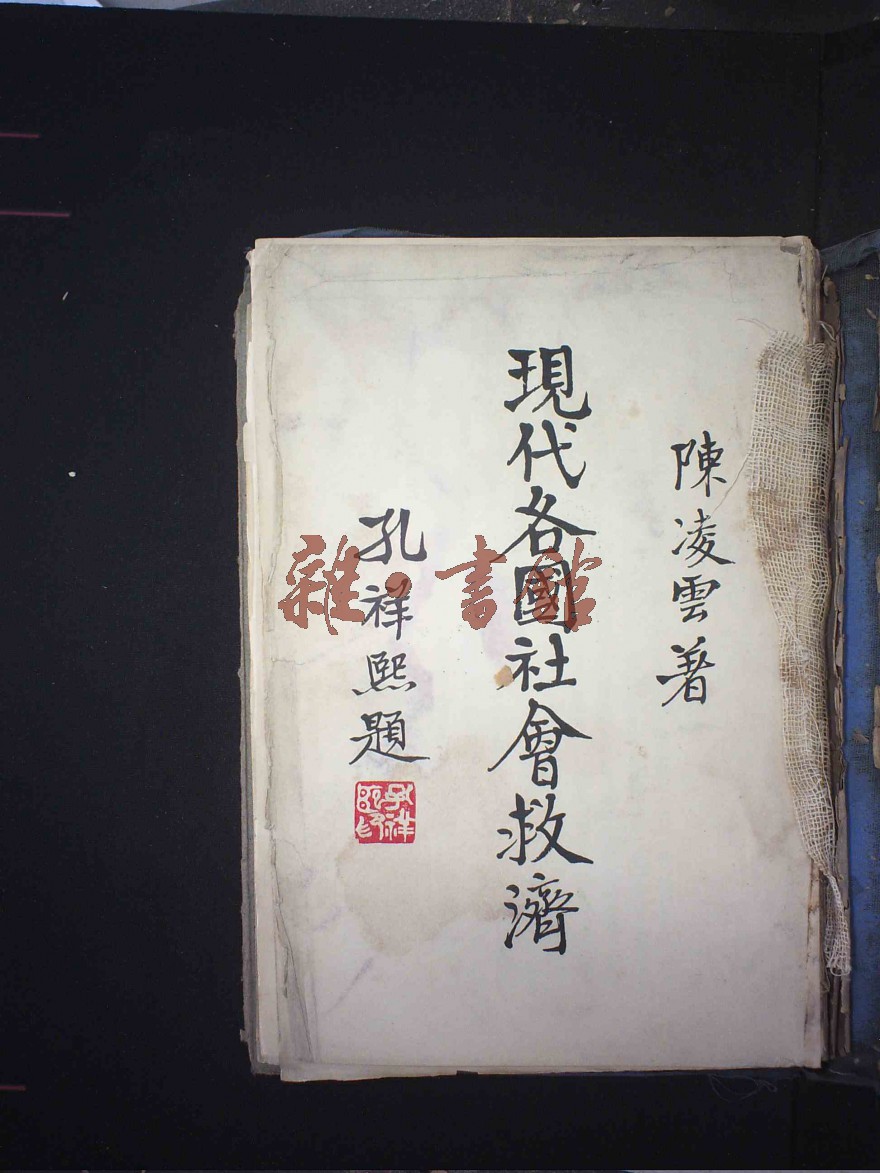 陳凌雲著
現代各國社會救濟
孔祥熙題
孔祥熙印
雜·書館